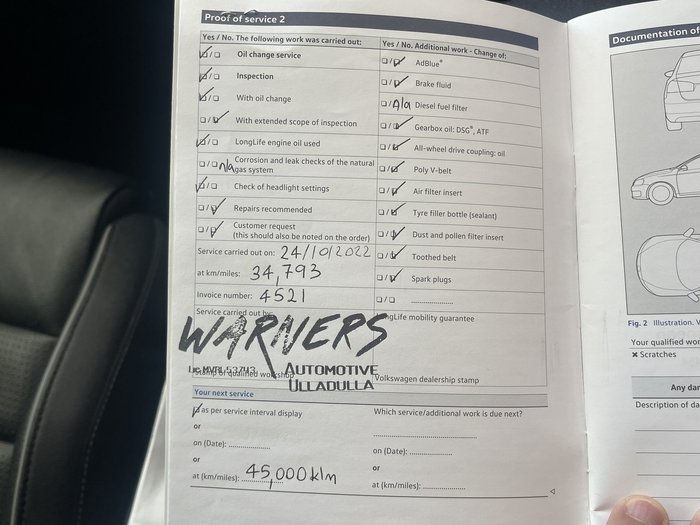 Proof of service 2
Yes / No. The following work was carried out:
Oil change service
Inspection
With oil change
With extended scope of inspection
LongLife engine oil used
n/a Corrosion and leak checks of the natural
gas system
Check of headlight settings
Repairs recommended
Customer request
(this should also be noted on the order)
Service carried out on: 24/10/2022
at km/miles: 34,793
Invoice number: 4521
Service carried out by:
WARNERS
AUTOMOTIVE
ULLADULLA
Lic MVRL 53743
Yes / No. Additional work - Change of:
AdBlue®
Brake fluid
n/a Diesel fuel filter
Gearbox oil: DSG®, ATF
All-wheel drive coupling: oil
Poly V-belt
Air filter insert
Tyre filler bottle (sealant)
Dust and pollen filter insert
Toothed belt
Spark plugs
ngLife mobility guarantee
Volkswagen dealership stamp
Your next service
as per service interval display
or
on (Date):
or
at (km/miles): 45,000klm
Which service/additional work is due next?
on (Date):
or
at (km/miles):
Documentation of
Fig. 2 Illustration. V
Your qualified wor
× Scratches
Any dar
Description of da